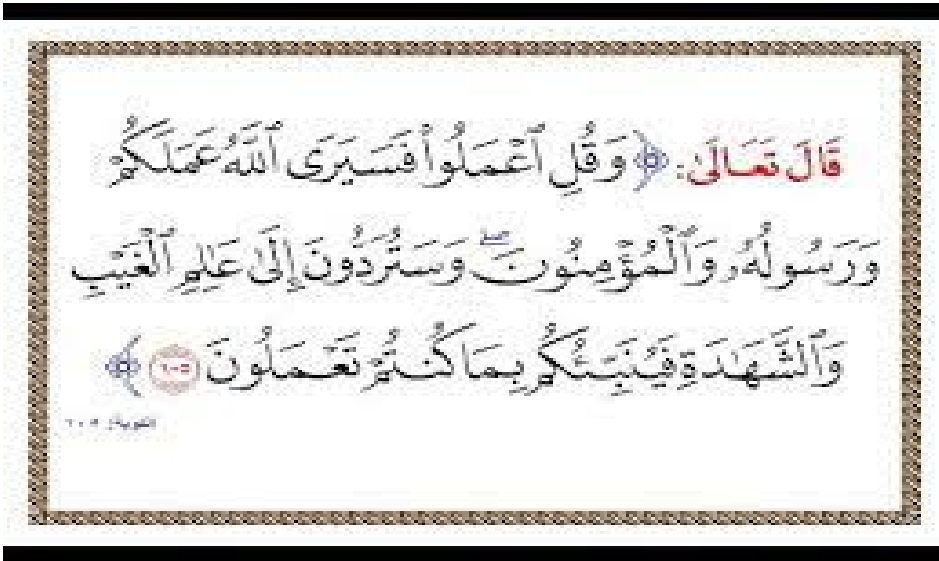 قَالَ تَعَالَىٰ: ﴿ وَقُلِ ٱعْمَلُوا۟ فَسَيَرَى ٱللَّهُ عَمَلَكُمْ
وَرَسُولُهُۥ وَٱلْمُؤْمِنُونَ ۖ وَسَتُرَدُّونَ إِلَىٰ عَٰلِمِ ٱلْغَيْبِ
وَٱلشَّهَٰدَةِ فَيُنَبِّئُكُم بِمَا كُنتُمْ تَعْمَلُونَ ١٠٥ ﴾
التوبة: ١٠٥